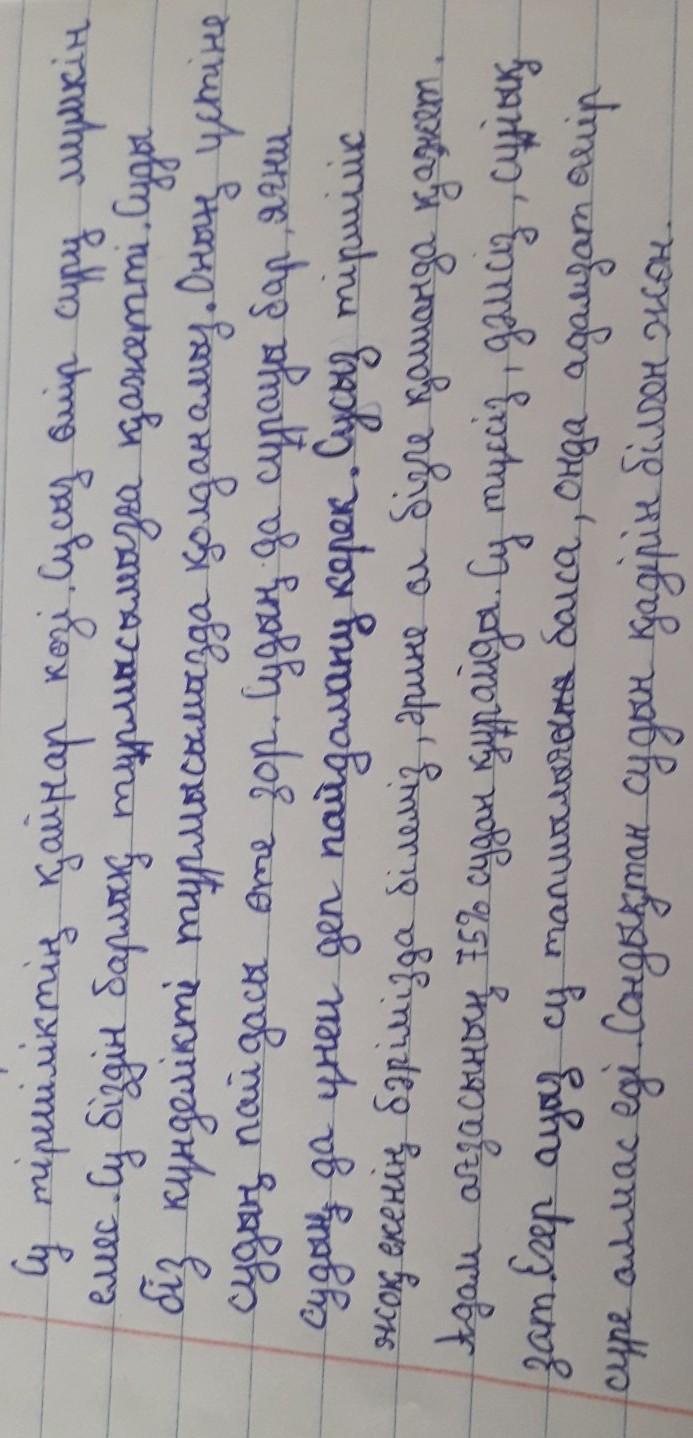 Су тіршіліктің қайнар көзі. Сусыз өмір сүру мүмкін
емес. Су біздің барлық тұрмысымызға қажетті. Суды
біз күнделікті тұрмысымызда қолданамыз. Оның үстіне
судың пайдасы өте зор. Судың да сұрауы бар, яғни
судың да үнем деп пайдалану керек. Сусыз тіршілік
жоқ екенің бәрімізда білеміз, әрине ол бізге қашанда қажет.
Адам ағзасының 75% судан құрайды. Су түссіз, дәмсіз, сұйық
зат. Егер ауыз су тапшылығы болса, онда адамзат өмір
сүре алмас еді. Сондықтан судын қадірін білген жөн.